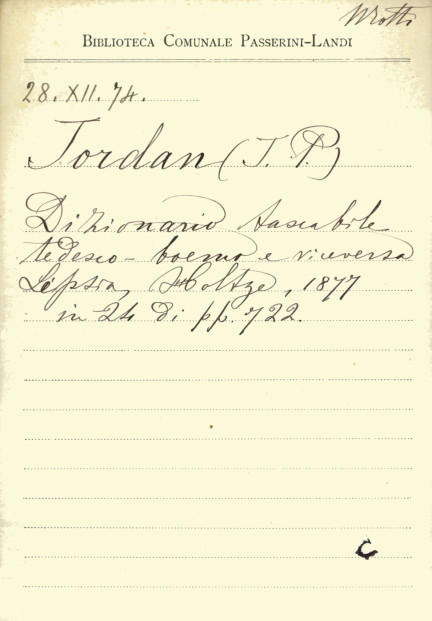 Motti
BIBLIOTECA COMUNALE PASSERINI-LANDI
28. XII. 74.
Jordan (J. P.)
Dizionario tascabile
tedesco - boemo e viceversa
Lipsia, Holtze, 1877
in 24 di pp. 722.
C